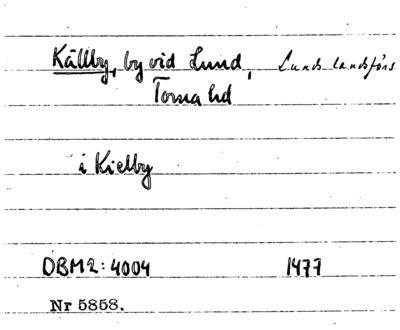 Källby, by vid Lund, Lunds landsförs
Torna hd
i Kielby
DBM2:4004 1477
Nr 5858.